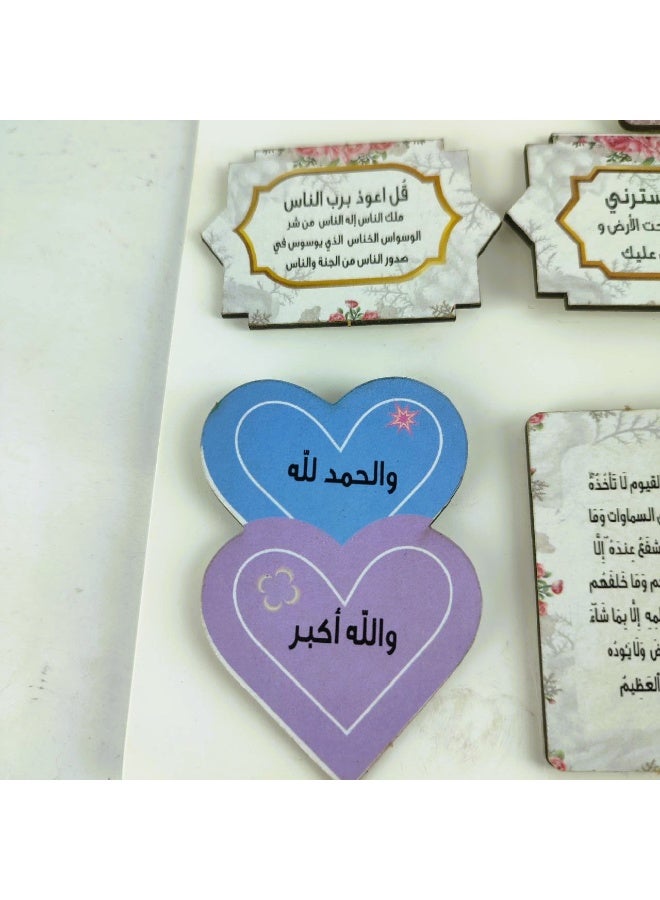 قُل اعوذ برب الناس
ملك الناس إله الناس من شر
الوسواس الخناس الذي يوسوس في
صدور الناس من الجنة والناس
سترني
حت الأرض و
عليك
والحمد للّه
واللّه أكبر
لقيوم لَا تَأخُذُهُ
السماوات وَمَا
شفَعُ عِندَهُ إِلَّا
وَمَا خَلفَهُم
إِلَّا بِمَا شَآءَ
وَلَا يَـُٔودُهُ
العَظِيمُ